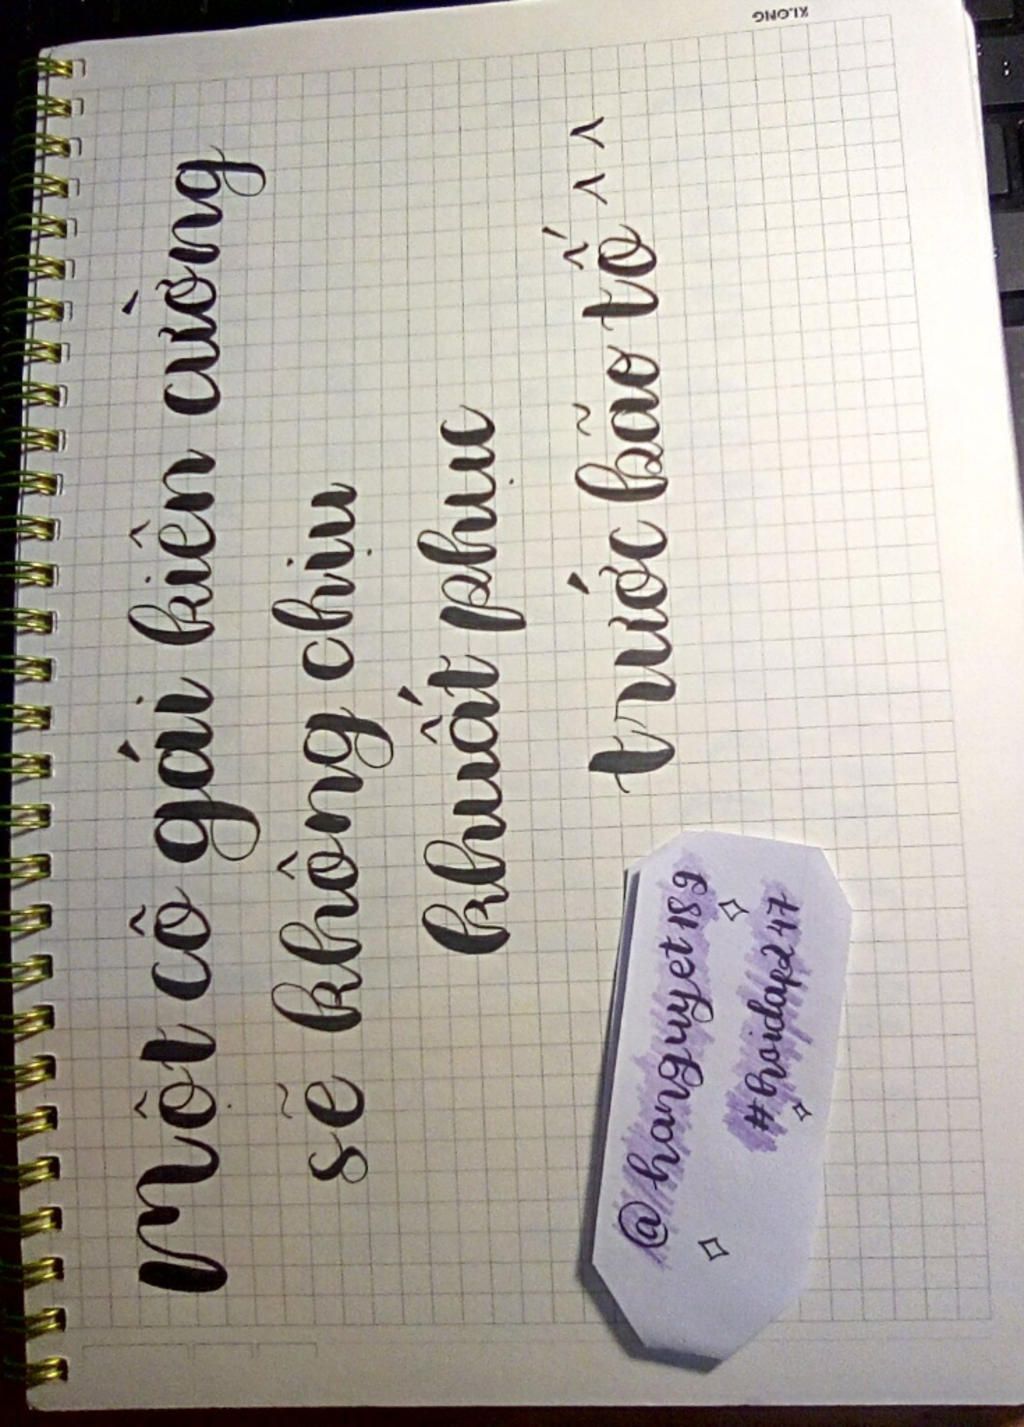 Một cô gái kiên cường
sẽ không chịu
khuất phục
trước bão tố ^ ^
@hanguyet189
#hoidap247
KLONG